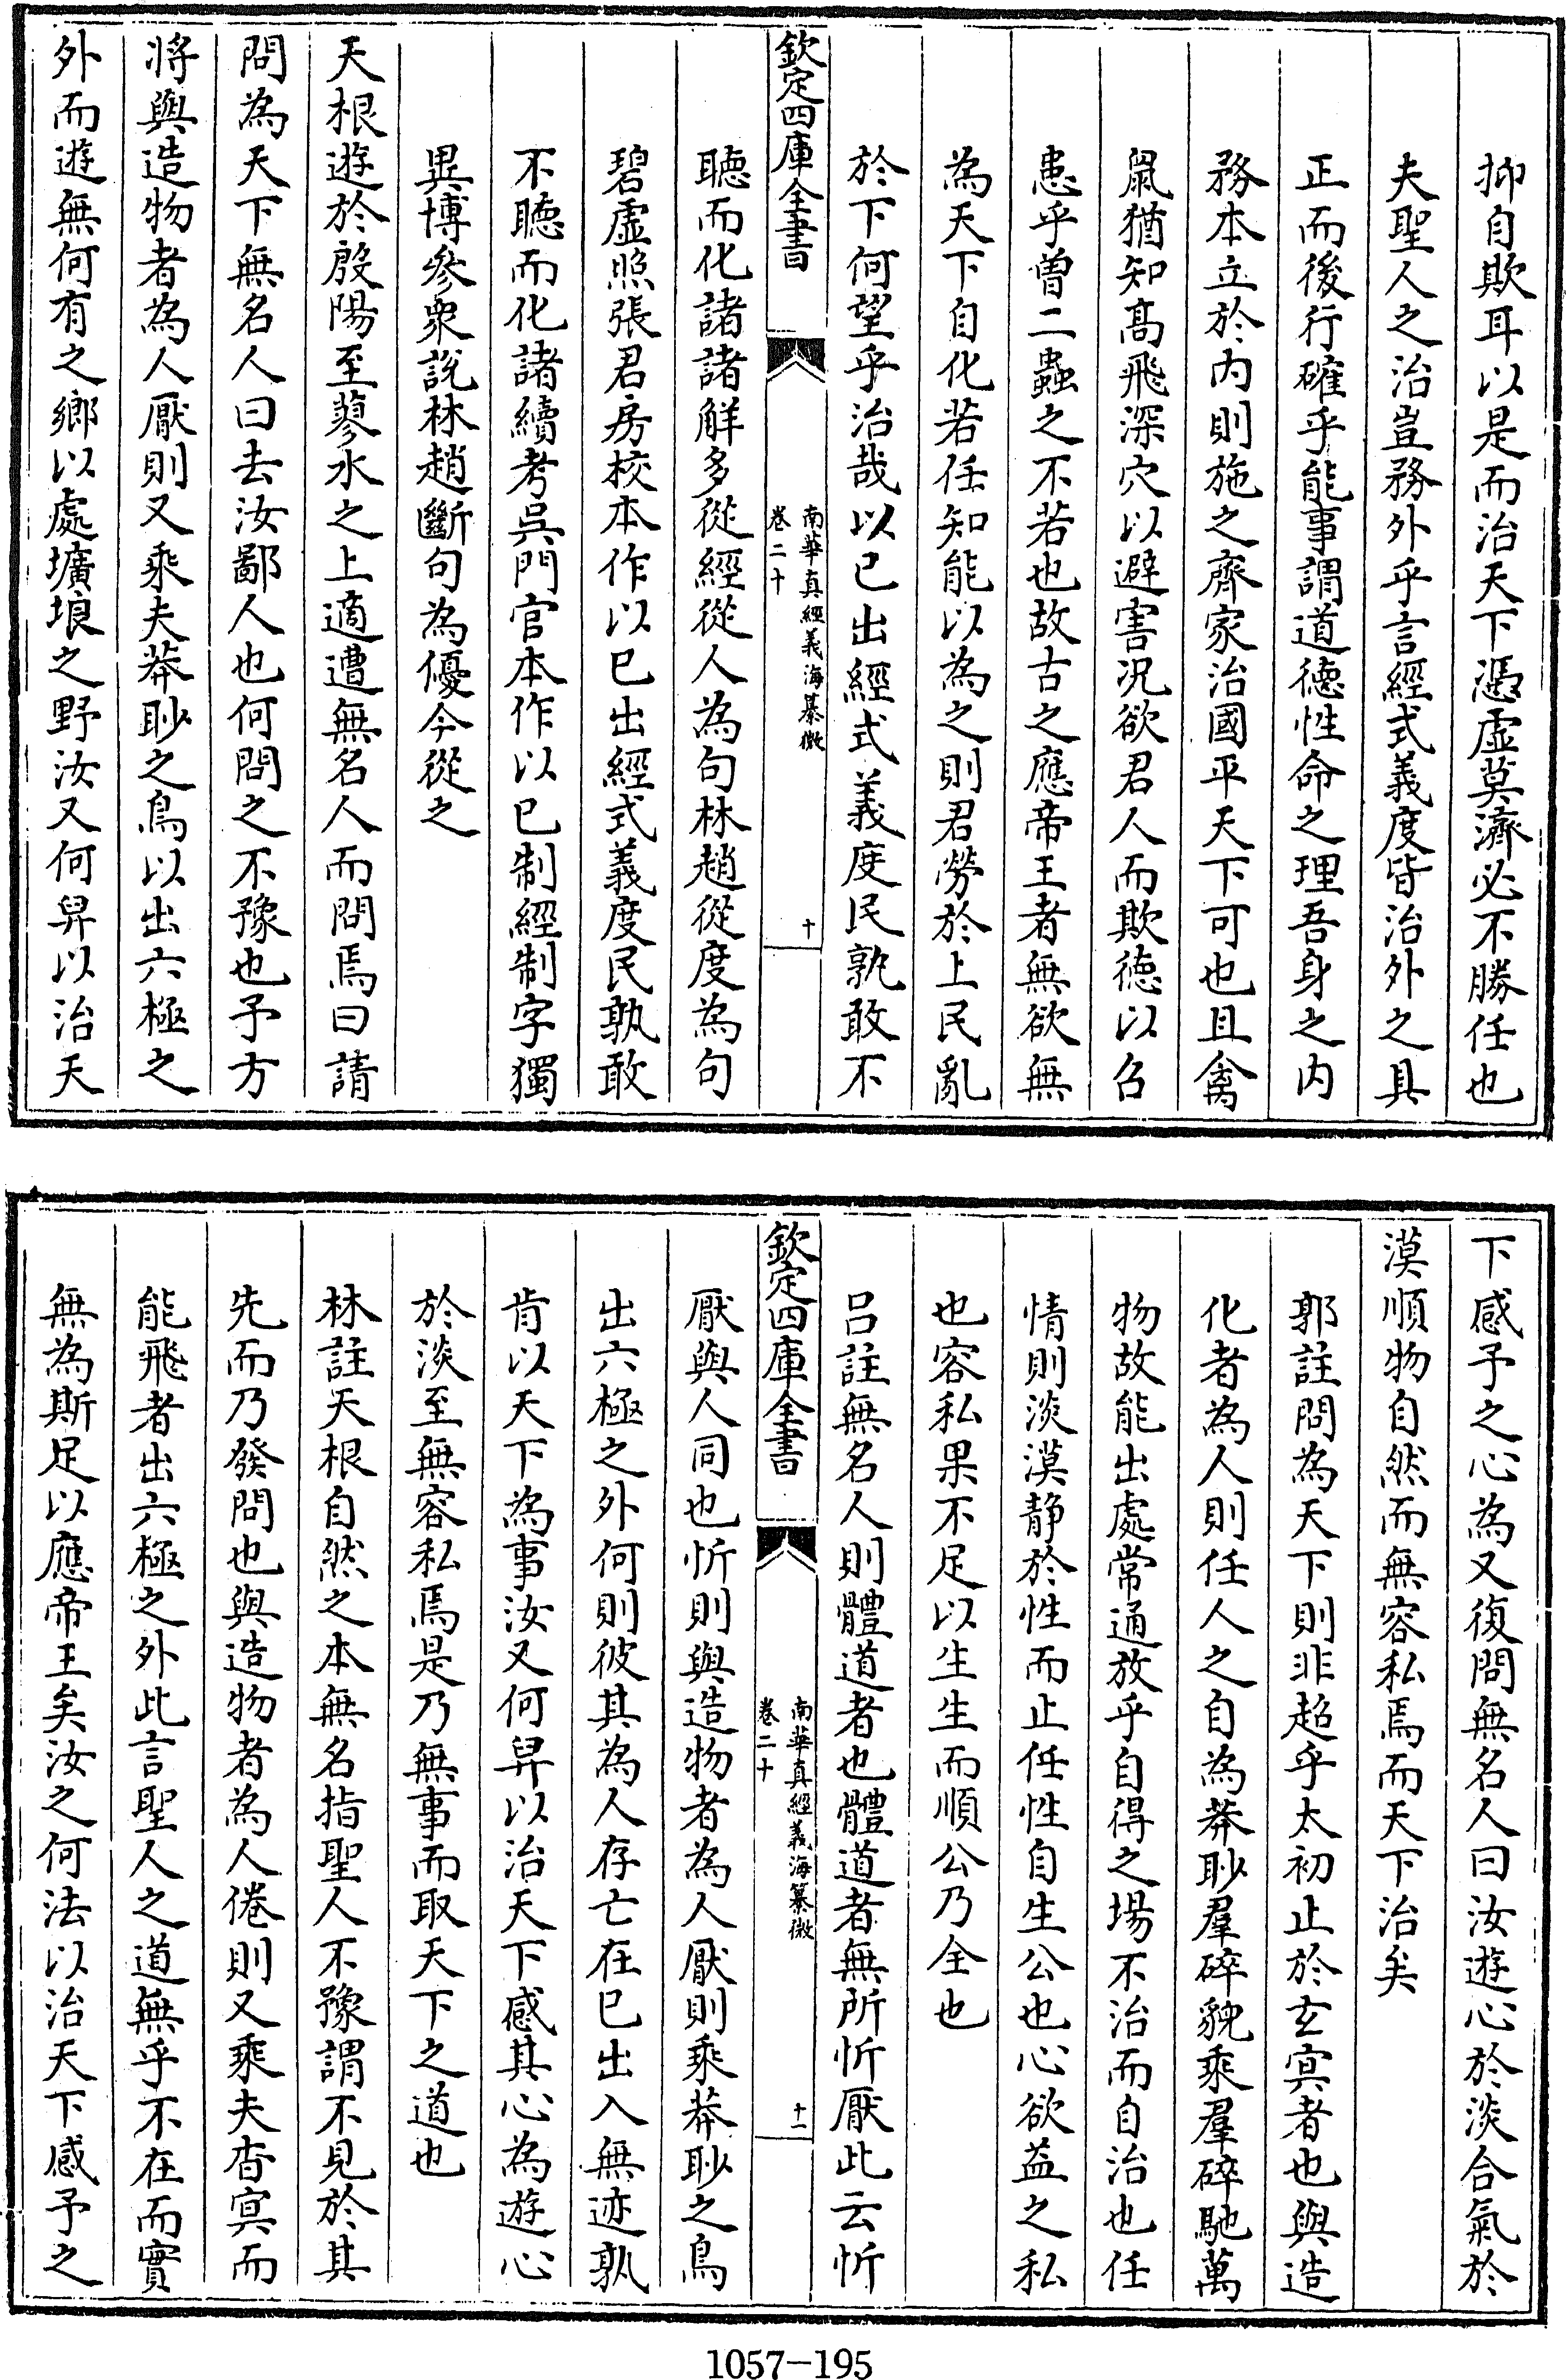 抑自欺耳以是而治天下憑虛莫濟必不勝任也
夫聖人之治豈務外乎言經式義度皆治外之具
正而後行確乎能事謂道徳性命之理吾身之内
務本立於内則施之齊家治國平天下可也且禽
鼠猶知髙飛深穴以避害况欲君人而欺徳以召
患乎曽二蟲之不若也故古之應帝王者無欲無
為天下自化若任知能以為之則君勞於上民亂
於下何望乎治哉以已出經式義度民孰敢不
欽定四庫全書
南華真經義海纂微
卷二十
十
聽而化諸諸解多從經從人為句林趙從度為句
碧虛照張君房校本作以已出經式義度民孰敢
不聽而化諸續考吳門官本作以已制經制字獨
異博參衆説林趙斷句為優今從之
天根遊於殷陽至蓼水之上適遭無名人而問焉曰請
問為天下無名人曰去汝鄙人也何問之不豫也予方
將與造物者為人厭則又乘夫莽眇之鳥以出六極之
外而遊無何有之鄉以處壙埌之野汝又何帠以治天
下感予之心為又復問無名人曰汝遊心於淡合氣於
漠順物自然而無容私焉而天下治矣
郭註問為天下則非超乎太初止於玄冥者也與造
化者為人則任人之自為莽眇羣碎貌乘羣碎馳萬
物故能出處常通放乎自得之場不治而自治也任
情則淡漠静於性而止任性自生公也心欲益之私
也容私果不足以生生而順公乃全也
吕註無名人則體道者也體道者無所忻厭此云忻
欽定四庫全書
南華真經義海纂微
卷二十
十一
厭與人同也忻則與造物者為人厭則乘莽眇之鳥
出六極之外何則彼其為人存亡在已出入無迹孰
肯以天下為事汝又何帠以治天下感其心為遊心
於淡至無容私焉是乃無事而取天下之道也
林註天根自然之本無名指聖人不豫謂不見於其
先而乃發問也與造物者為人倦則又乘夫杳冥而
能飛者出六極之外此言聖人之道無乎不在而實
無為斯足以應帝王矣汝之何法以治天下感予之
1057-195